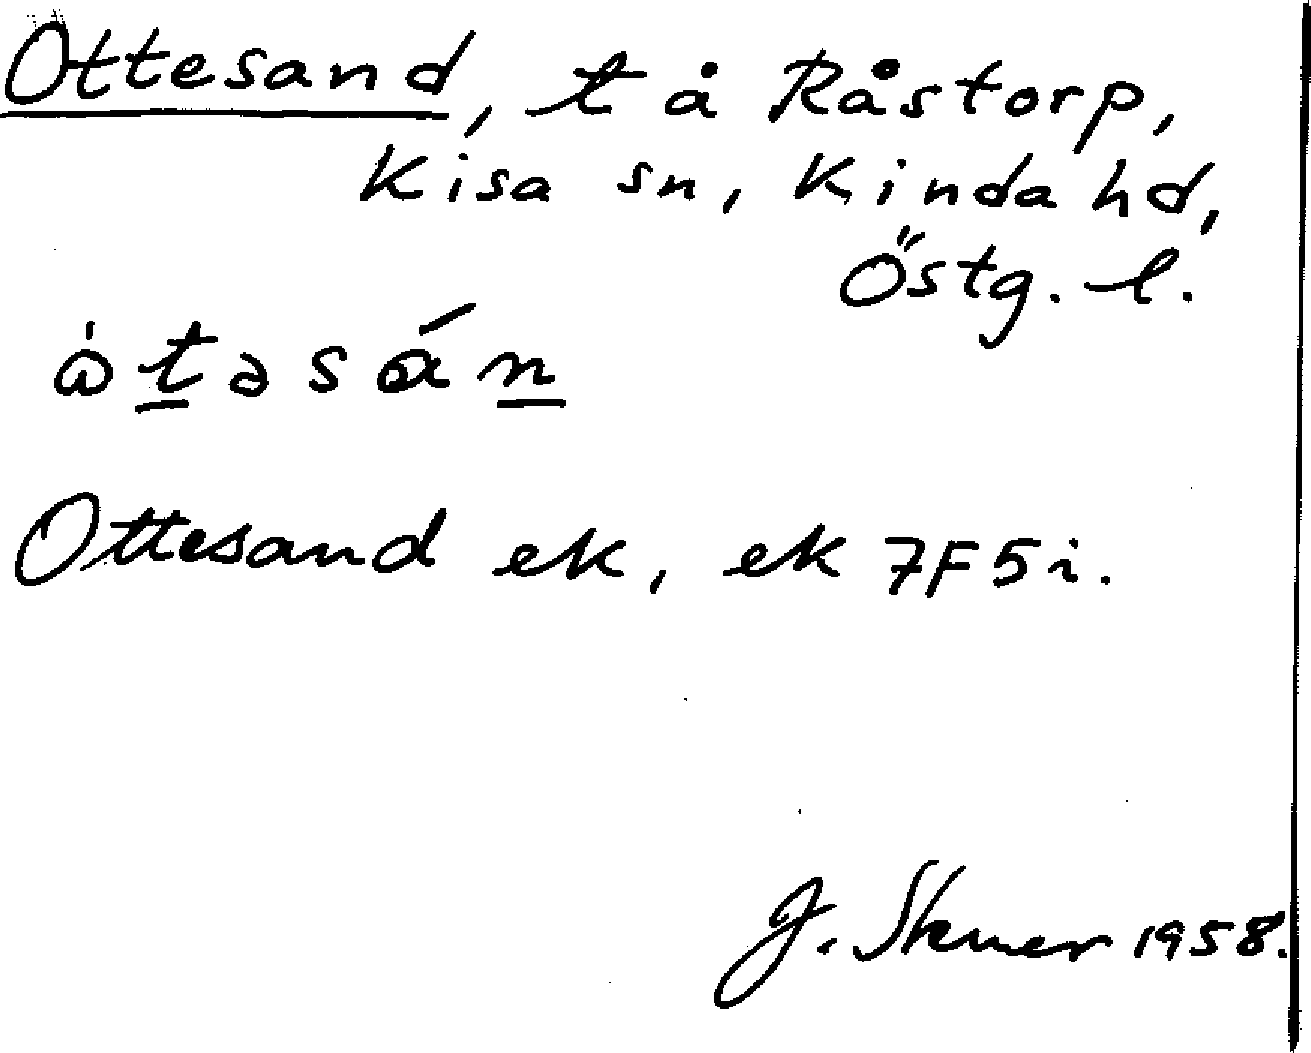 Ottesand, t å Råstorp,
Kisa sn, Kinda hd,
Östg. l.
ω̇təsán
Ottesand ek, ek 7F5i.
J. 1958.